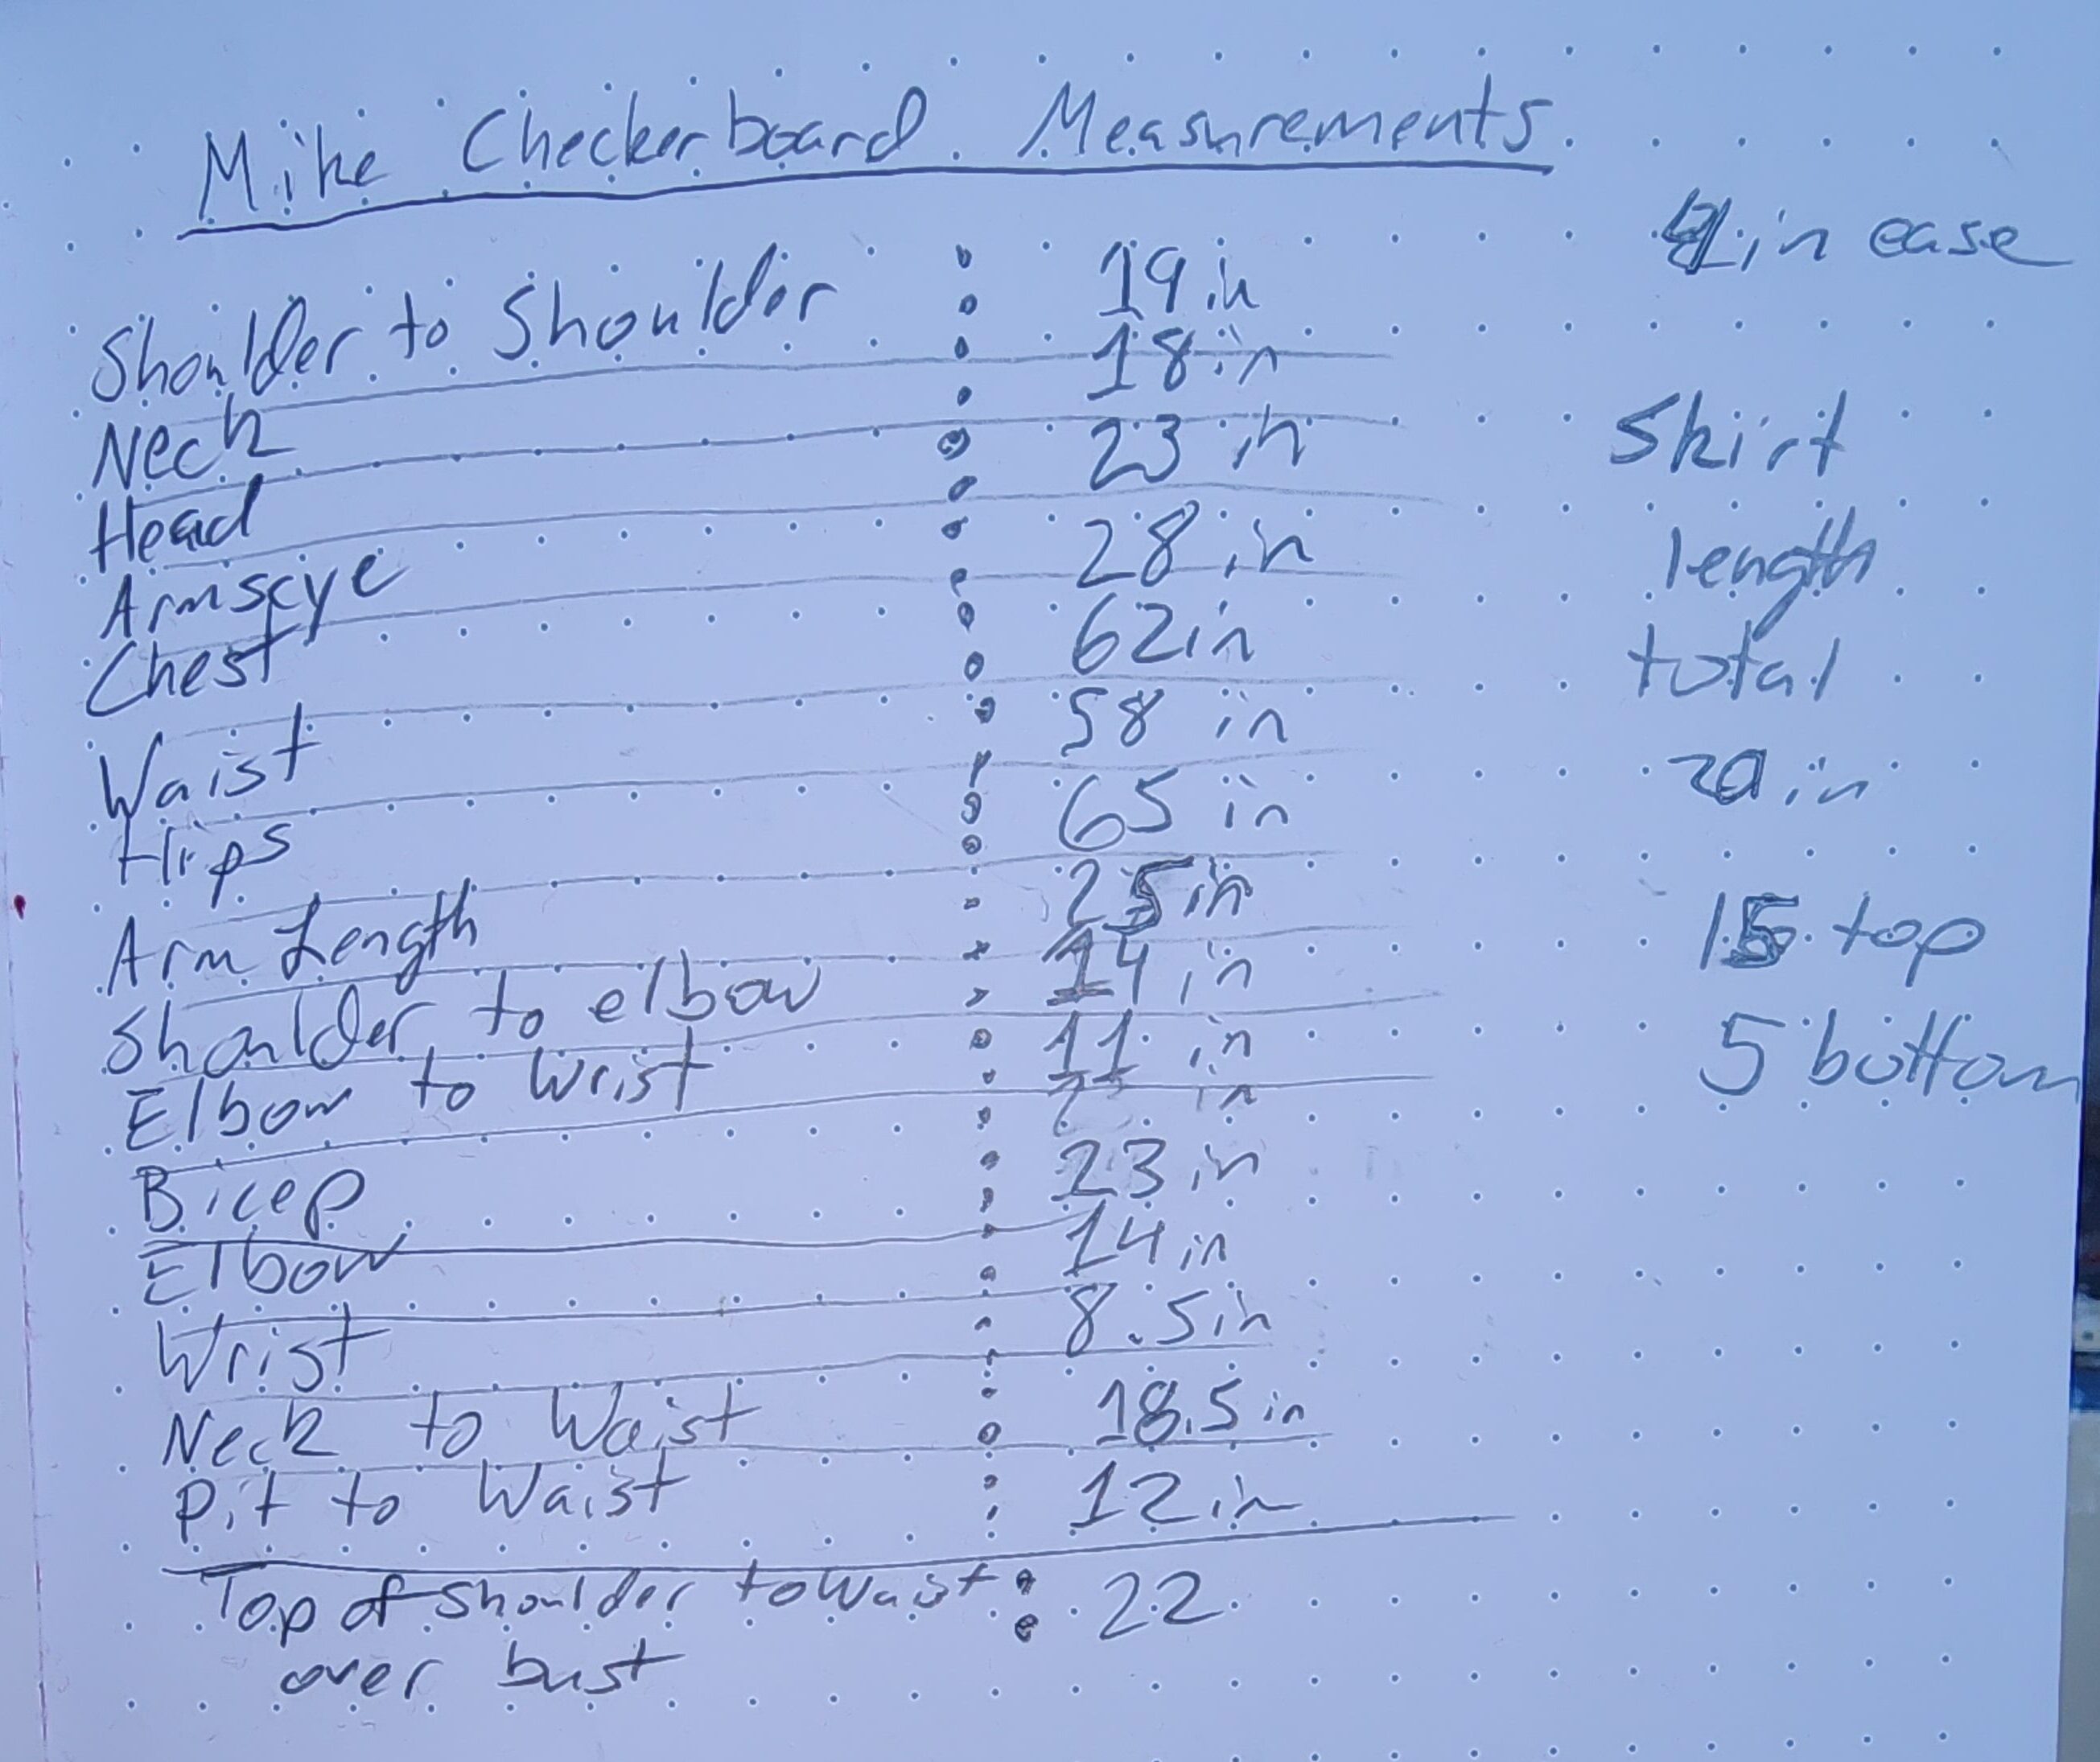 Mike Checkerboard Measurements
in ease
Shoulder to Shoulder : 19 in
Neck : 18 in
Head : 23 in
Armscye : 28 in
Chest : 62 in
Waist : 58 in
Hips : 65 in
Arm Length : 25 in
Shoulder to elbow : 14 in
Elbow to Wrist : 11 in
in
Bicep : 23 in
Elbow : 14 in
Wrist : 8.5 in
Neck to Waist : 18.5 in
Pit to Waist : 12 in
Top of shoulder to Waist : 22
over bust
Skirt
length
total
20 in
15 top
5 bottom